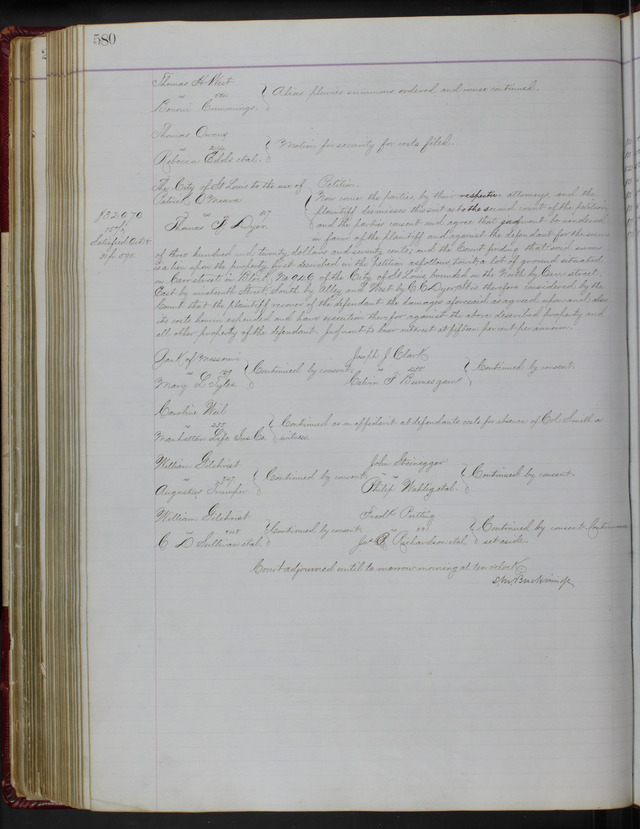 580
Thomas H. West
vs
Bonnie Cummings
Alias pluries summons ordered and cause continued.
Thomas Owens
vs
Rebecca Edds et al.
Motion for security for costs filed.
The City of St Louis to the use of
Patrick O'Meara
vs 117
Thomas B Dyer
$320.70
15%
Satisfied Oct 15
Petition.
Now come the parties by their respective attorneys and the
plaintiff dismisses this suit as to the second count of the petition,
and the parties consent and agree that judgment be rendered
in favor of the plaintiff and against the defendant for the sum
of three hundred and twenty dollars and seventy cents; and the Court finding that said sum
is a lien upon the property first described in the Petition as follows towit; a lot of ground situated
on Carr street in Block No of the City of St Louis, bounded on the North by Carr street,
East by nineteenth Street, South by Alley and West by C C Dyer. It is therefore considered by the
Court that the plaintiff recover of the defendant the damages aforesaid as agreed upon and also
its costs herein expended and have execution therefor against the above described property and
all other property of the defendant. Judgment to bear interest at fifteen per cent per annum.
Bank of Missouri
vs
Mary L Tyler
Continued by consent
Joseph J. Clark
vs
Calvin F Burnes
Continued by consent.
Caroline Weil
vs 255
Manhattan Life Ins Co.
Continued on affidavit at defendants costs for absence of Col Smith a
witness.
William Gilchrist
vs
Augustus
Continued by consent
John Steinegger
vs
Philip Wahlig et al.
Continued by consent.
William Gilchrist
vs
C D Sullivan et al.
Continued by consent
Fredk
vs
Jas R Richardson et al
Continued by consent. Continuance
set aside.
Court adjourned until to morrow morning at ten o'clock